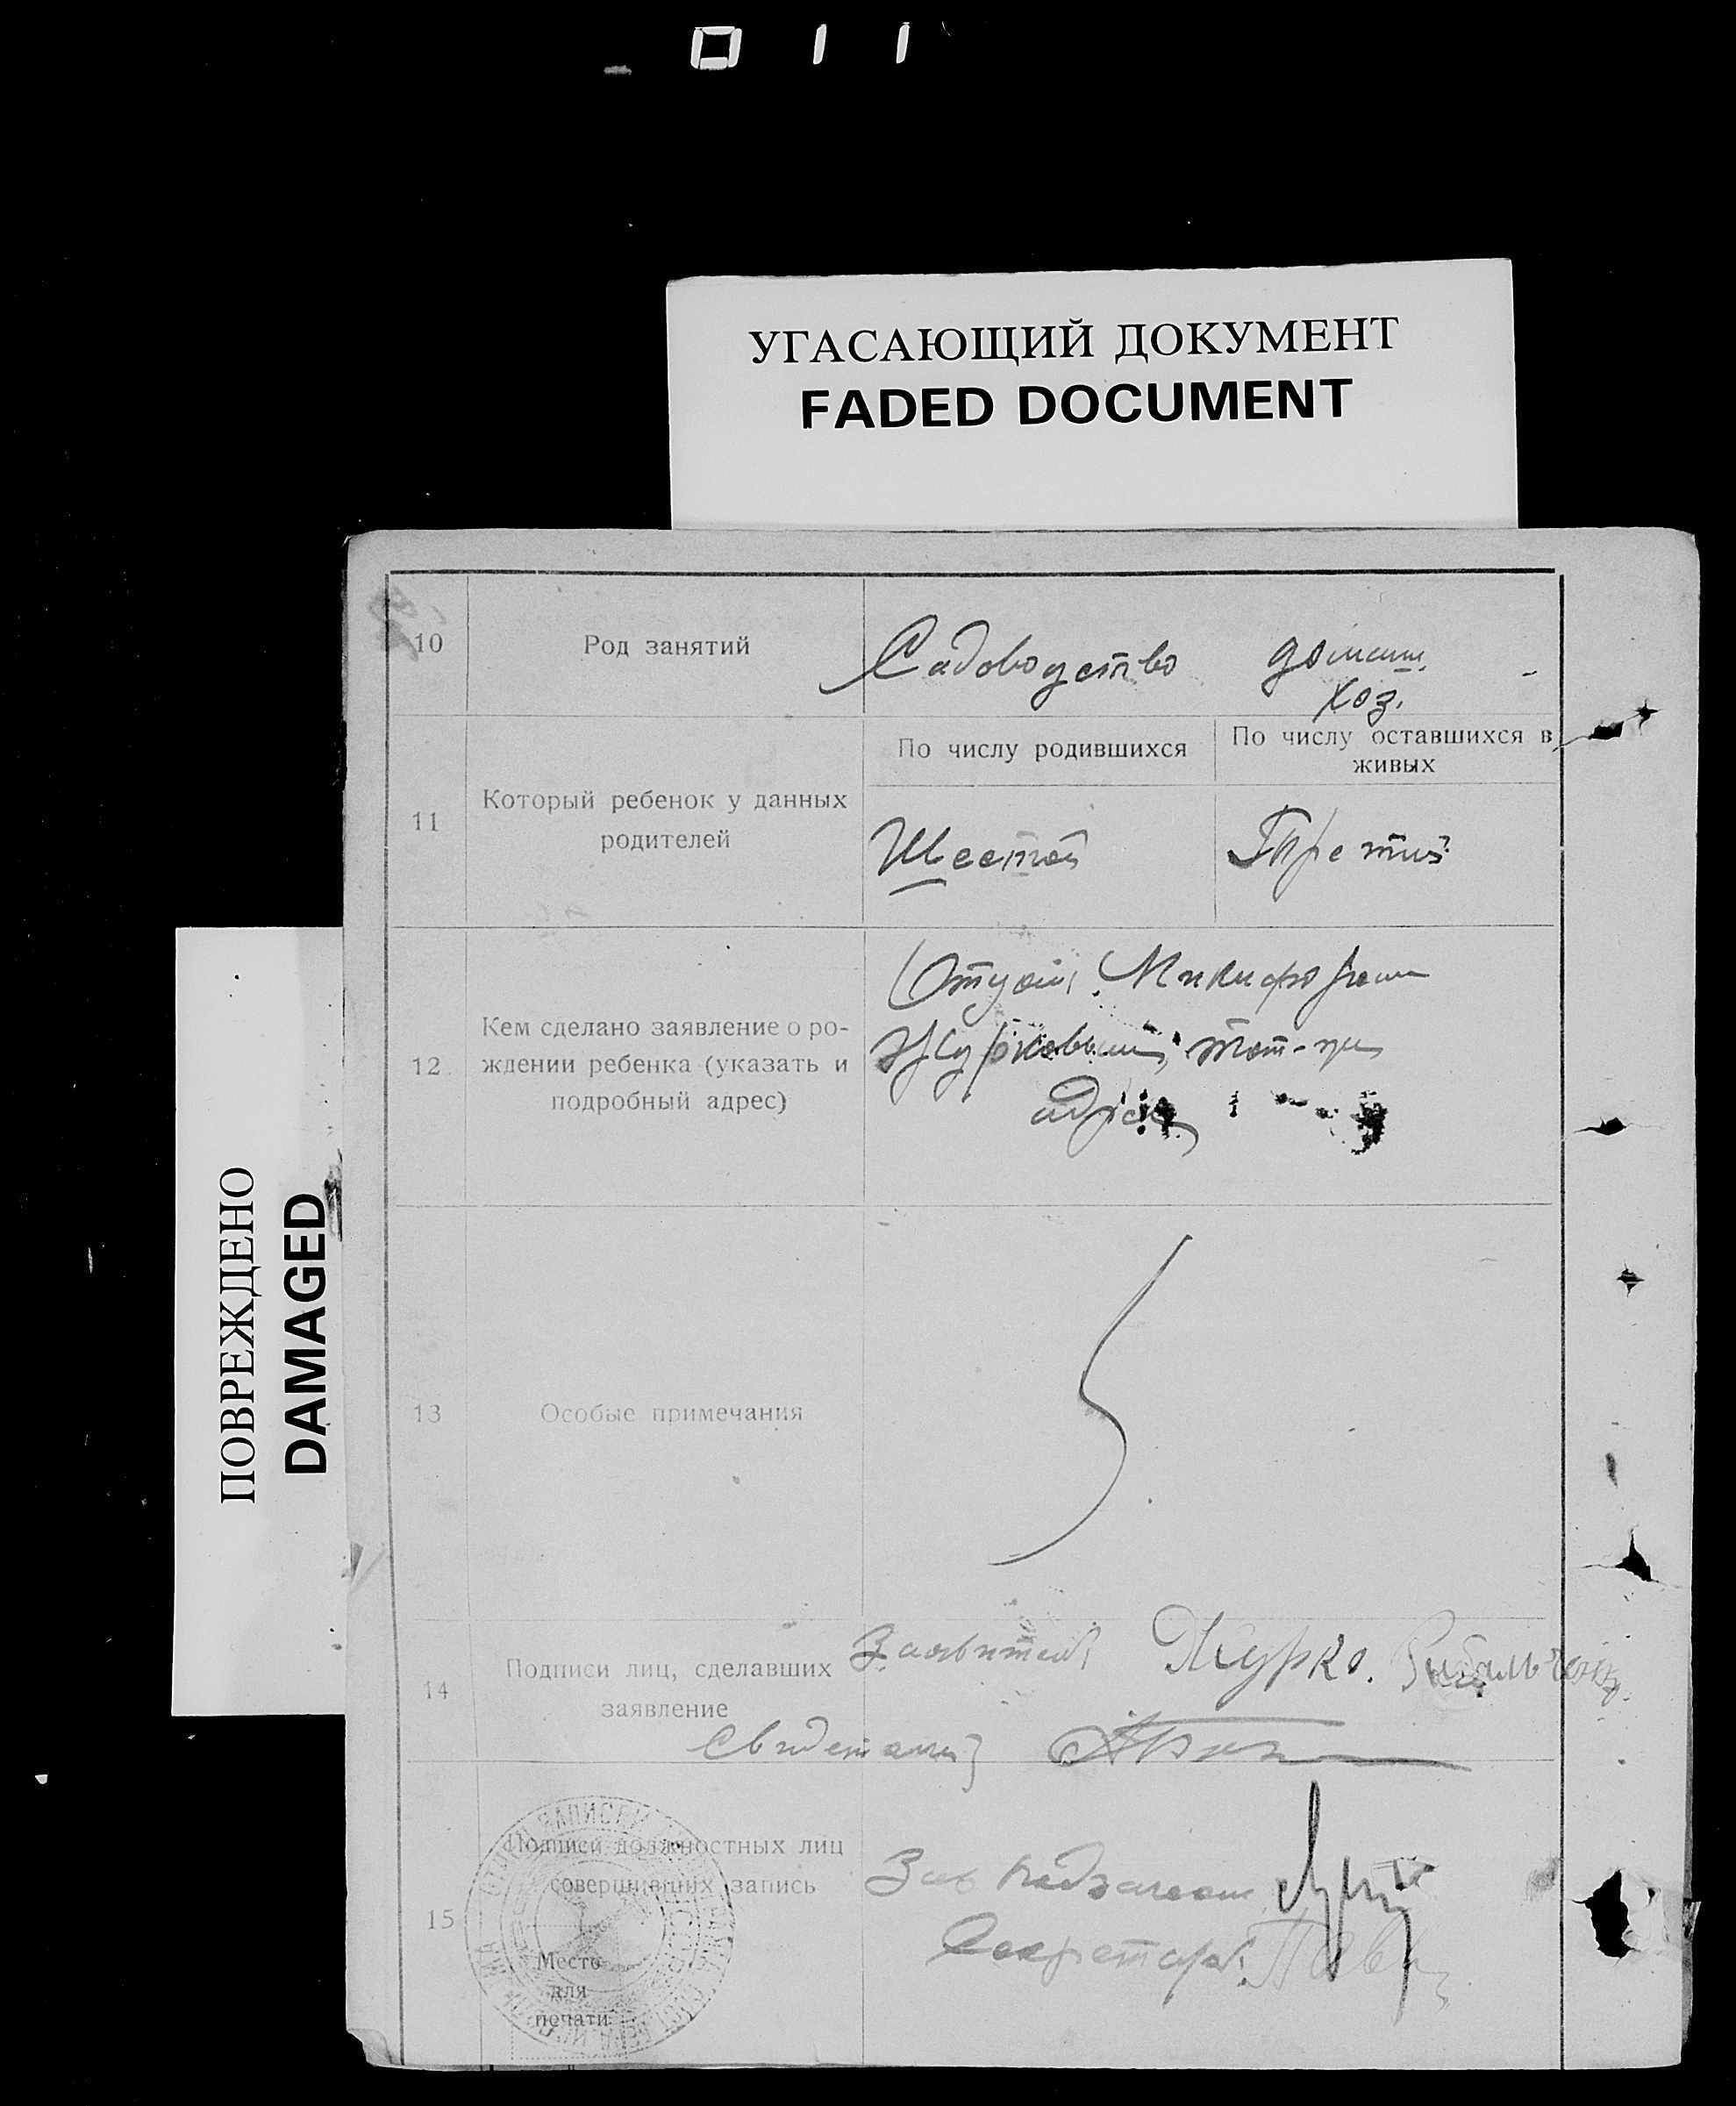 011
УГАСАЮЩИЙ ДОКУМЕНТ
FADED DOCUMENT
ПОВРЕЖДЕНО
DAMAGED
10 Род занятий Садоводство домашн. хоз.
11 Который ребенок у данных родителей
По числу родившихся
По числу оставшихся в живых
Шестой
Третий
12 Кем сделано заявление о ро-
ждении ребенка (указать и
подробный адрес)
Отцом Никифором
Журковым, тот-же
адрес
13 Особые примечания
14 Подписи лиц, сделавших
заявление
Заявитель Журко.
Свидетели
15 Подписи должностных лиц
совершивших запись
Место
для
печати
Зав
Секретарь